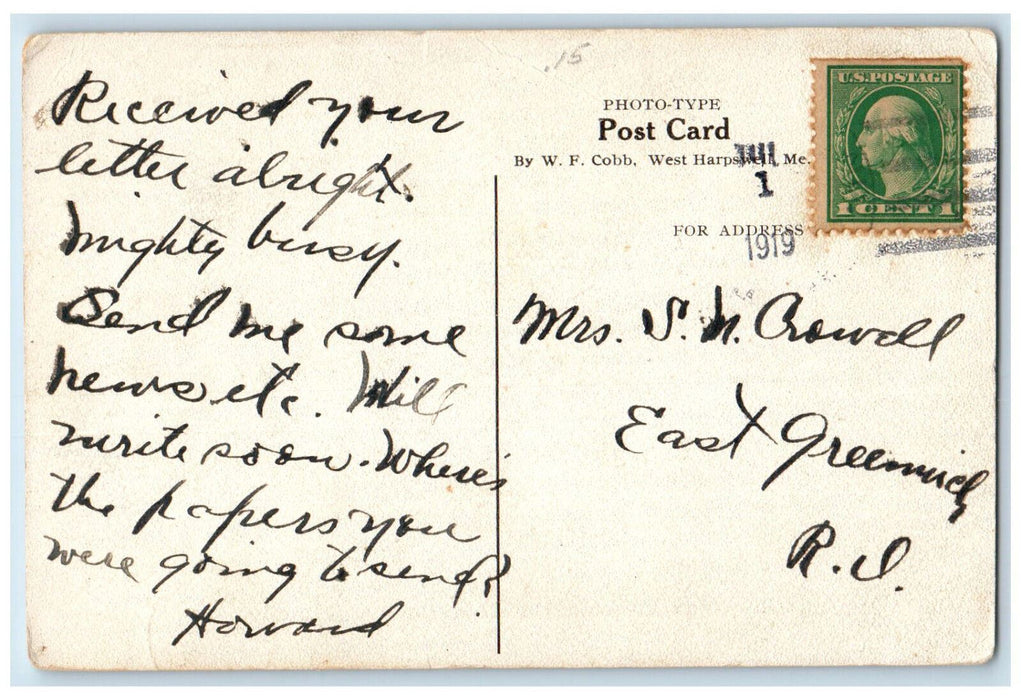 .15
Received your
letter alright.
Mighty busy.
Send me some
news etc. Will
write soon. Where's
the papers you
were going to send?
Howard
PHOTO-TYPE
Post Card
By W. F. Cobb, West Harpswell, Me.
FOR ADDRESS
JUL
1
1919
U.S. POSTAGE
1 CENT 1
Mrs. S. N. Crowell
East Greenwich
R.I.